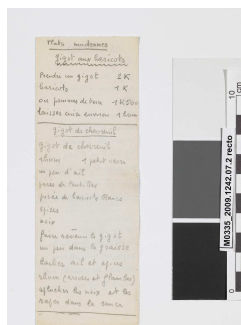 Plats mesdames
gigot aux haricots
Prendre un gigot 2K
haricots 1K
ou pommes de terre 1K500
laisser cuire environ 1 heure
gigot de chevreuil
gigot de chevreuil
rhum 1 petit verre
un peu d'ail
purée de lentilles
purée de haricots blancs
épices
noix
faire revenir le gigot
un peu dans la graisse
hacher ail et épices
rhum (arroser et flamber)
éplucher les noix et les
râper dans la sauce
0
10
1cm
M0335_2009.1242.07.2 recto